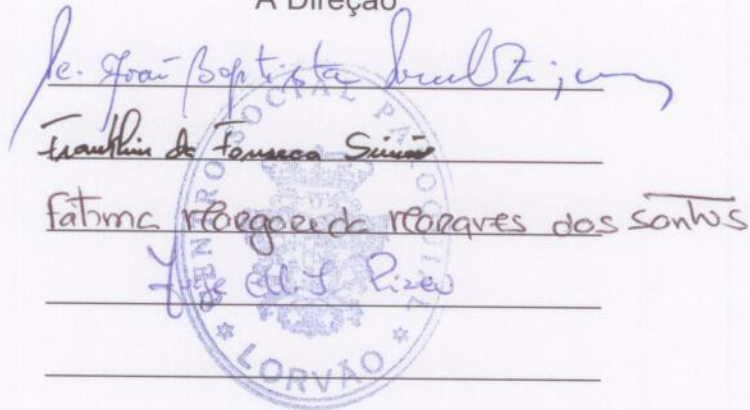 A Direção
Pe. João Baptista
Franklin da Fonseca Simões
Fátima Margarida Marques dos Santos
Jorge
CENTRO SOCIAL PAROQUIAL
* LORVÃO *